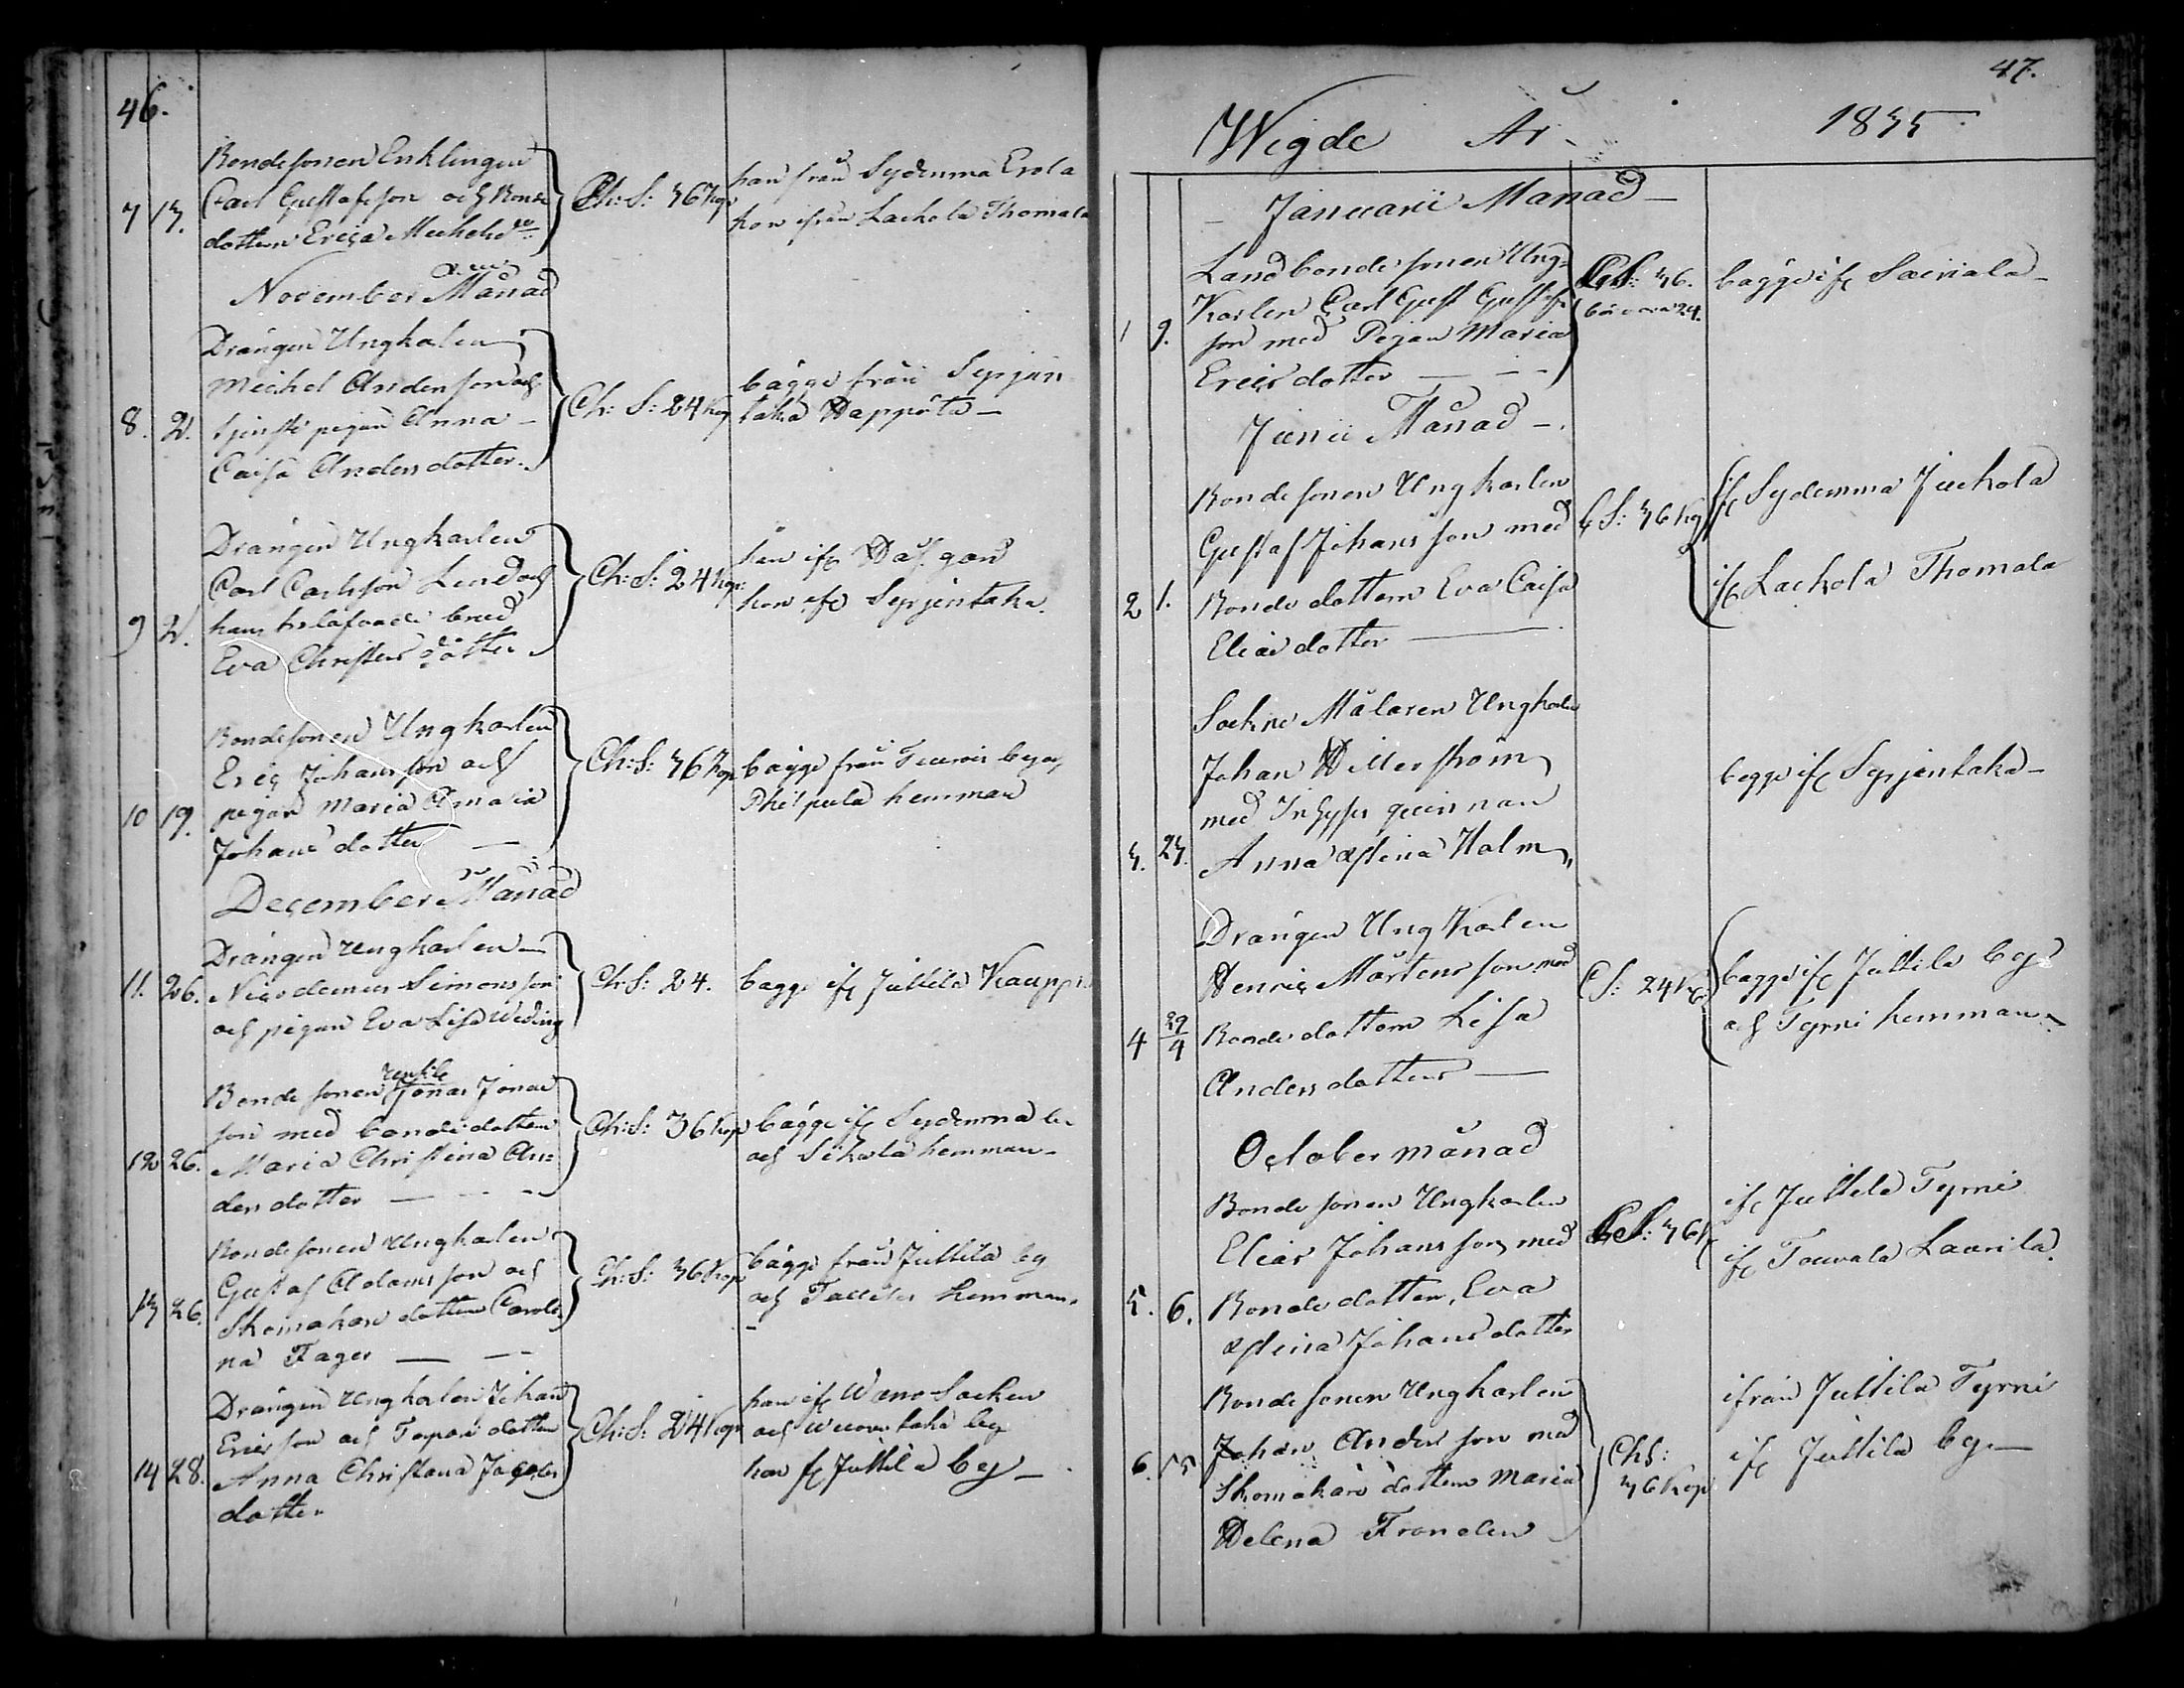 46.
Bondesonen Enklingen
Carl Gustafsson och Bonde
7 13. dottern Erica Michelsdr
Ch: S: 36 Kop
han från Sydänmä Erola
hon ifrån Lackola Thomala
November Månad
Drängen Ungkarlen
Michel Andersson och
8. 2. tjenste pigan Anna
Caisa Andersdotter.
Ch: S: 24 Kop
bägge från Syrjän
taka Happåla
Drängen Ungkarlen
Carl Carlsson Lind och
9 2. hans trolofvade brud
Eva Christers dotter
Ch: S: 24 Kop:
han ifr
hon ifr Syrjentaka.
Bondesonen Ungkarlen
Eric Johansson och
10 19. pigan Maria Amalia
Johans dotter
Ch: S: 36 Kop
bägge från Teurois by och
Philpula hemman
December Månad
Drängen Ungkarlen
11. 26. Nicodemus Simonsson
och pigan Eva Lisa Weding
Ch S: 24.
bagge ifr Juttila Kauppi
Bondesonen Jonas Jonas
son med bondedottern
12 26. Maria Christina An
dersdotter
Ch: S: 36 Kop
bägge ifr Sydänmä by
och Sikala hemman
Bondesonen Ungkarlen
Gustaf Adamsson och
13 26. Skomakare dottern Caroli
na Fager
Ch: S: 36 Kop
bägge från Juttila by
och hemman
Drängen Ungkarlen Johan
Ericsson och Torpare dotter
14 28. Anna Christina Jacobs
dotter
Ch: S: 24 Kop
han ifr Wånå Socken
och Wuorentaka by
hon fr Juttila by
47.
Wigde År 1835
Januarii Månad
Landbonde sonen Ung
Karlen Carl Gust Gustafs
1 9. son med Pigan Maria
Erics dotter
Ch S: 36.
bägge ifr Sairiala
Junii Månad
Bonde sonen Ungkarlen
Gustaf Johansson med
2 1. Bonde dottern Eva Caisa
Elias dotter
C S: 36 Kop
ifr Sydänmä Juckola
ifr Lackola Thomala
Sockne Målaren Ungkarlen
Johan Hillerström
med Inhyses qvinnan
3. 23. Anna Stina Holm
begge ifr Syrjentaka
Drängen Ungkarlen
Henric Mårtensson med
4 29/9 Bonde dottern Lisa
Anders dotter
C S: 24 Kop
bagge ifr Juttila by
och Tyrni hemman
October månad
Bonde sonen Ungkarlen
Elias Johansson med
5. 6. Bonde dottern Eva
Stina Johans dotter
C S: 36 K
ifr Juttila Tyrni
ifr Touvala Laurila
Bonde sonen Ungkarlen
Johan Andersson med
6. 15 Skomakare dottern Maria
Helena Frondén
Ch S:
36 Kop
ifrån Juttila Tyrni
ifr Juttila by